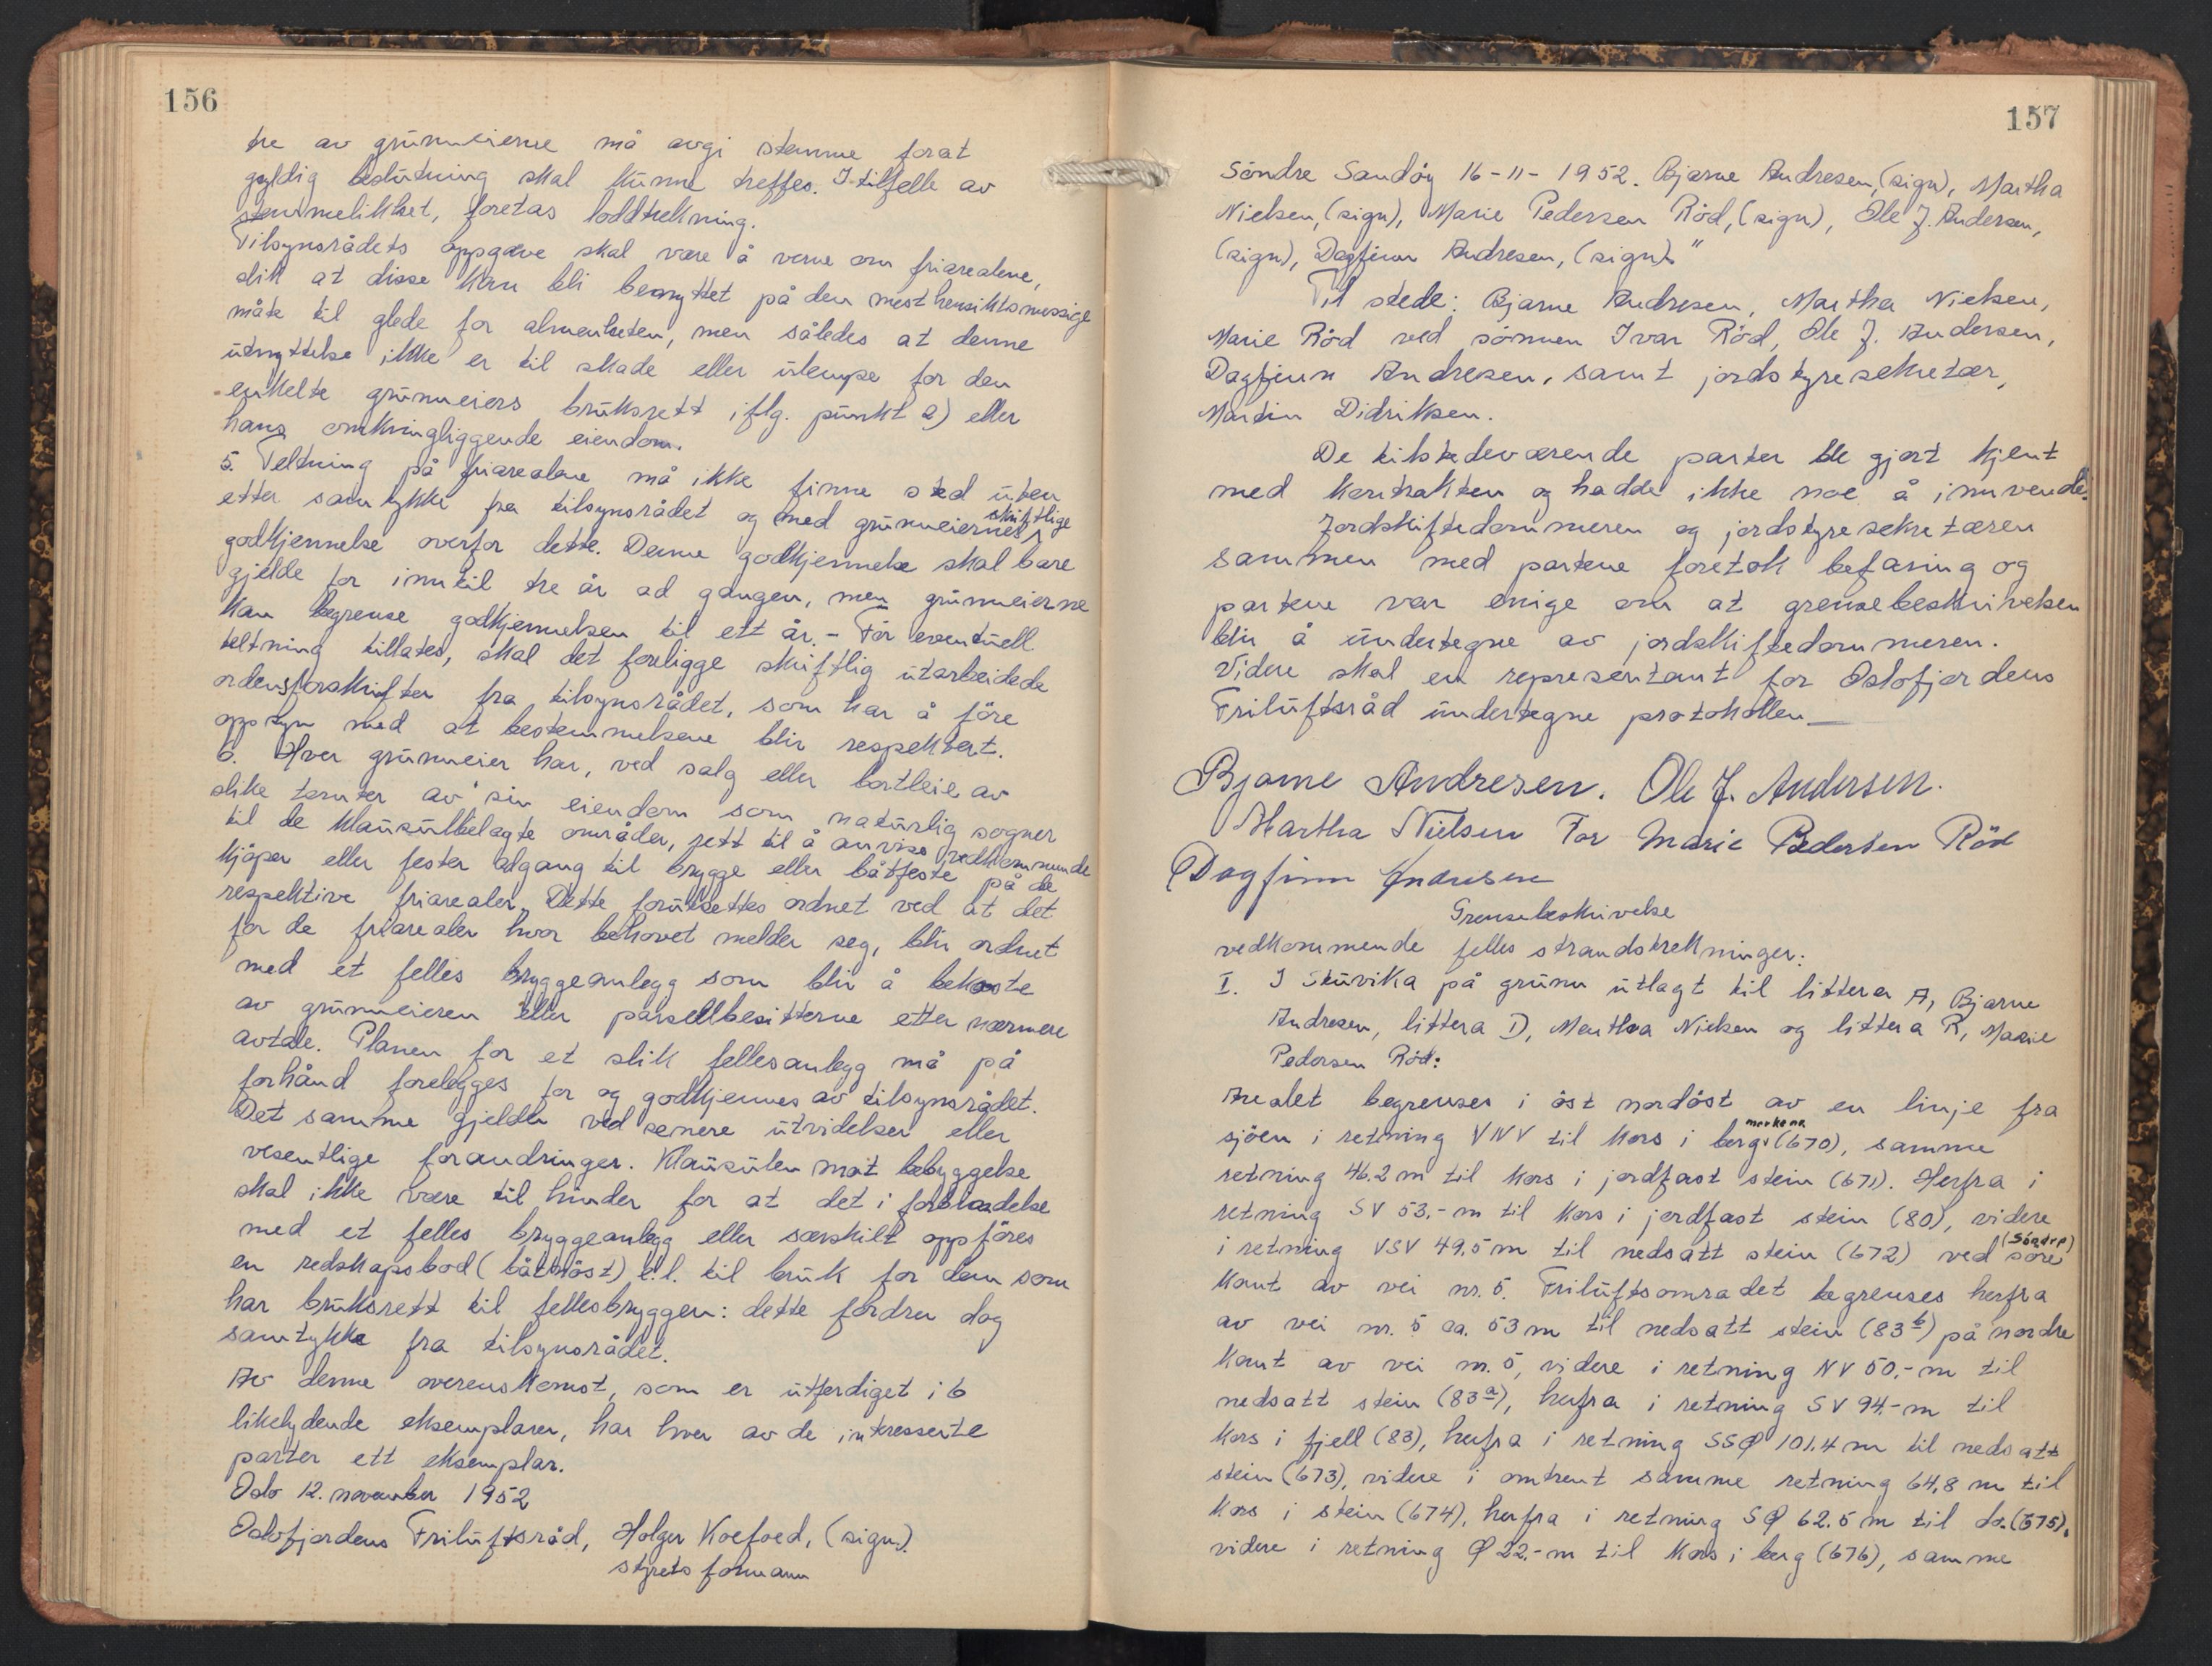 156
tre av grunneierne må avgi stemme forat
gyldig beslutning skal kunne treffes. I tilfelle av
stemmelikhet, foretas loddtrekning.
Tilsynsrådets oppgave skal være å verne om friarealene,
slik at disse kan bli benyttet på den mest hensiktsmessige
måte til glede for almenheten, men således at denne
utnyttelse ikke er til skade eller ulempe for den
enkelte grunneiers bruksrett iflg. punkt 2) eller
hans omkringliggende eiendom.
5. Teltning på friarealene må ikke finne sted uten
etter samtykke fra tilsynsrådet og med grunneiernes skriftlige
godkjennelse overfor dette. Denne godkjennelse skal bare
gjelde for inntil tre år ad gangen, men grunneierne
kan begrense godkjennelsen til ett år. - Før eventuell
teltning tillates, skal det foreligge skriftlig utarbeidede
ordensforskrifter fra tilsynsrådet, som har å føre
oppsyn med at bestemmelsene blir respektert.
6. Hver grunneier har, ved salg eller bortleie av
slike tomter av sin eiendom som naturlig sogner
til de klausulbelagte områder, rett til å anvise vedkommende
kjøper eller fester adgang til brygge eller båtfeste på de
respektive friarealer. Dette forutsettes ordnet ved at det
for de friarealer hvor behovet melder seg, blir ordnet
med et felles bryggeanlegg som blir å bekoste
av grunneieren eller parsellbesitterne etter nærmere
avtale. Planen for et slik fellesanlegg må på
forhånd forelegges for og godkjennes av tilsynsrådet.
Det samme gjelder ved senere utvidelser eller
vesentlige forandringer. Klausulen mot bebyggelse
skal ikke være til hinder for at det i forbindelse
med et felles bryggeanlegg eller særskilt oppføres
en redskapsbod (båtnøst) e.l. til bruk for dem som
har bruksrett til fellesbryggen: dette fordrer dog
samtykke fra tilsynsrådet.
Av denne overenskomst, som er utferdiget i 6
likelydende eksemplarer, har hver av de interesserte
parter ett eksemplar.
Oslo 12. november 1952
Oslofjordens Friluftsråd, Holger Koefoed, (sign).
styrets formann
157
Søndre Sandøy 16-11-1952. Bjarne Andresen, (sign), Martha
Nielsen, (sign), Marie Pedersen Röd, (sign), Ole J. Andersen,
(sign), Dagfinn Andresen, (sign)."
Til stede: Bjarne Andresen, Martha Nielsen,
Marie Röd ved sønnen Ivar Röd, Ole J. Andersen,
Dagfinn Andresen, samt jordstyresekretær,
Martin Didriksen.
De tilstedeværende parter ble gjort kjent
med kontrakten og hadde ikke noe å innvende.
Jordskiftedommeren og jordstyresekretæren
sammen med partene foretok befaring og
partene var enige om at grensebeskrivelsen
blir å undertegne av jordskiftedommeren.
Videre skal en representant for Oslofjordens
Friluftsråd undertegne protokollen.—
Bjarne Andresen. Ole J. Andersen.
Martha Nielsen For Marie Pedersen Röd
Dagfinn Andresen
Grensebeskrivelse
vedkommende felles strandstrekninger:
I. I Stuvika på grunn utlagt til littera A, Bjarne
Andresen, littera D, Martha Nielsen og littera R, Marie
Pedersen Röd:
Arealet begrenses i øst nordøst av en linje fra
sjøen i retning VNV til kors i berg, merkena (670), samme
retning 46.2 m til kors i jordfast stein (671). Herfra i
retning SV 53.-m til kors i jordfast stein (80), videre
i retning VSV 49.5 m til nedsatt stein (672) ved søre (Søndre)
kant av vei nr. 5. Friluftsområdet begrenses herfra
av vei nr. 5 ca. 53 m til nedsatt stein (83b) på nordre
kant av vei nr. 5, videre i retning NV 50.-m til
nedsatt stein (83a), herfra i retning SV 94.-m til
kors i fjell (83), herfra i retning SSØ 101.4 m til nedsatt
stein (673), videre i omtrent samme retning 64,8 m til
kors i stein (674), herfra i retning SØ 62.5 m til do. (675),
videre i retning Ø 22.-m til kors i berg (676), samme